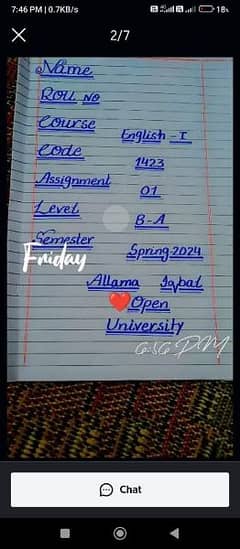 7:46 PM | 0.7KB/s
18%
2/7
Name
Roll No
Course English - I
Code 1423
Assignment 01
Level B-A
Semester Spring-2024
Friday
Allama Iqbal
Open
University
6:56 PM
Chat